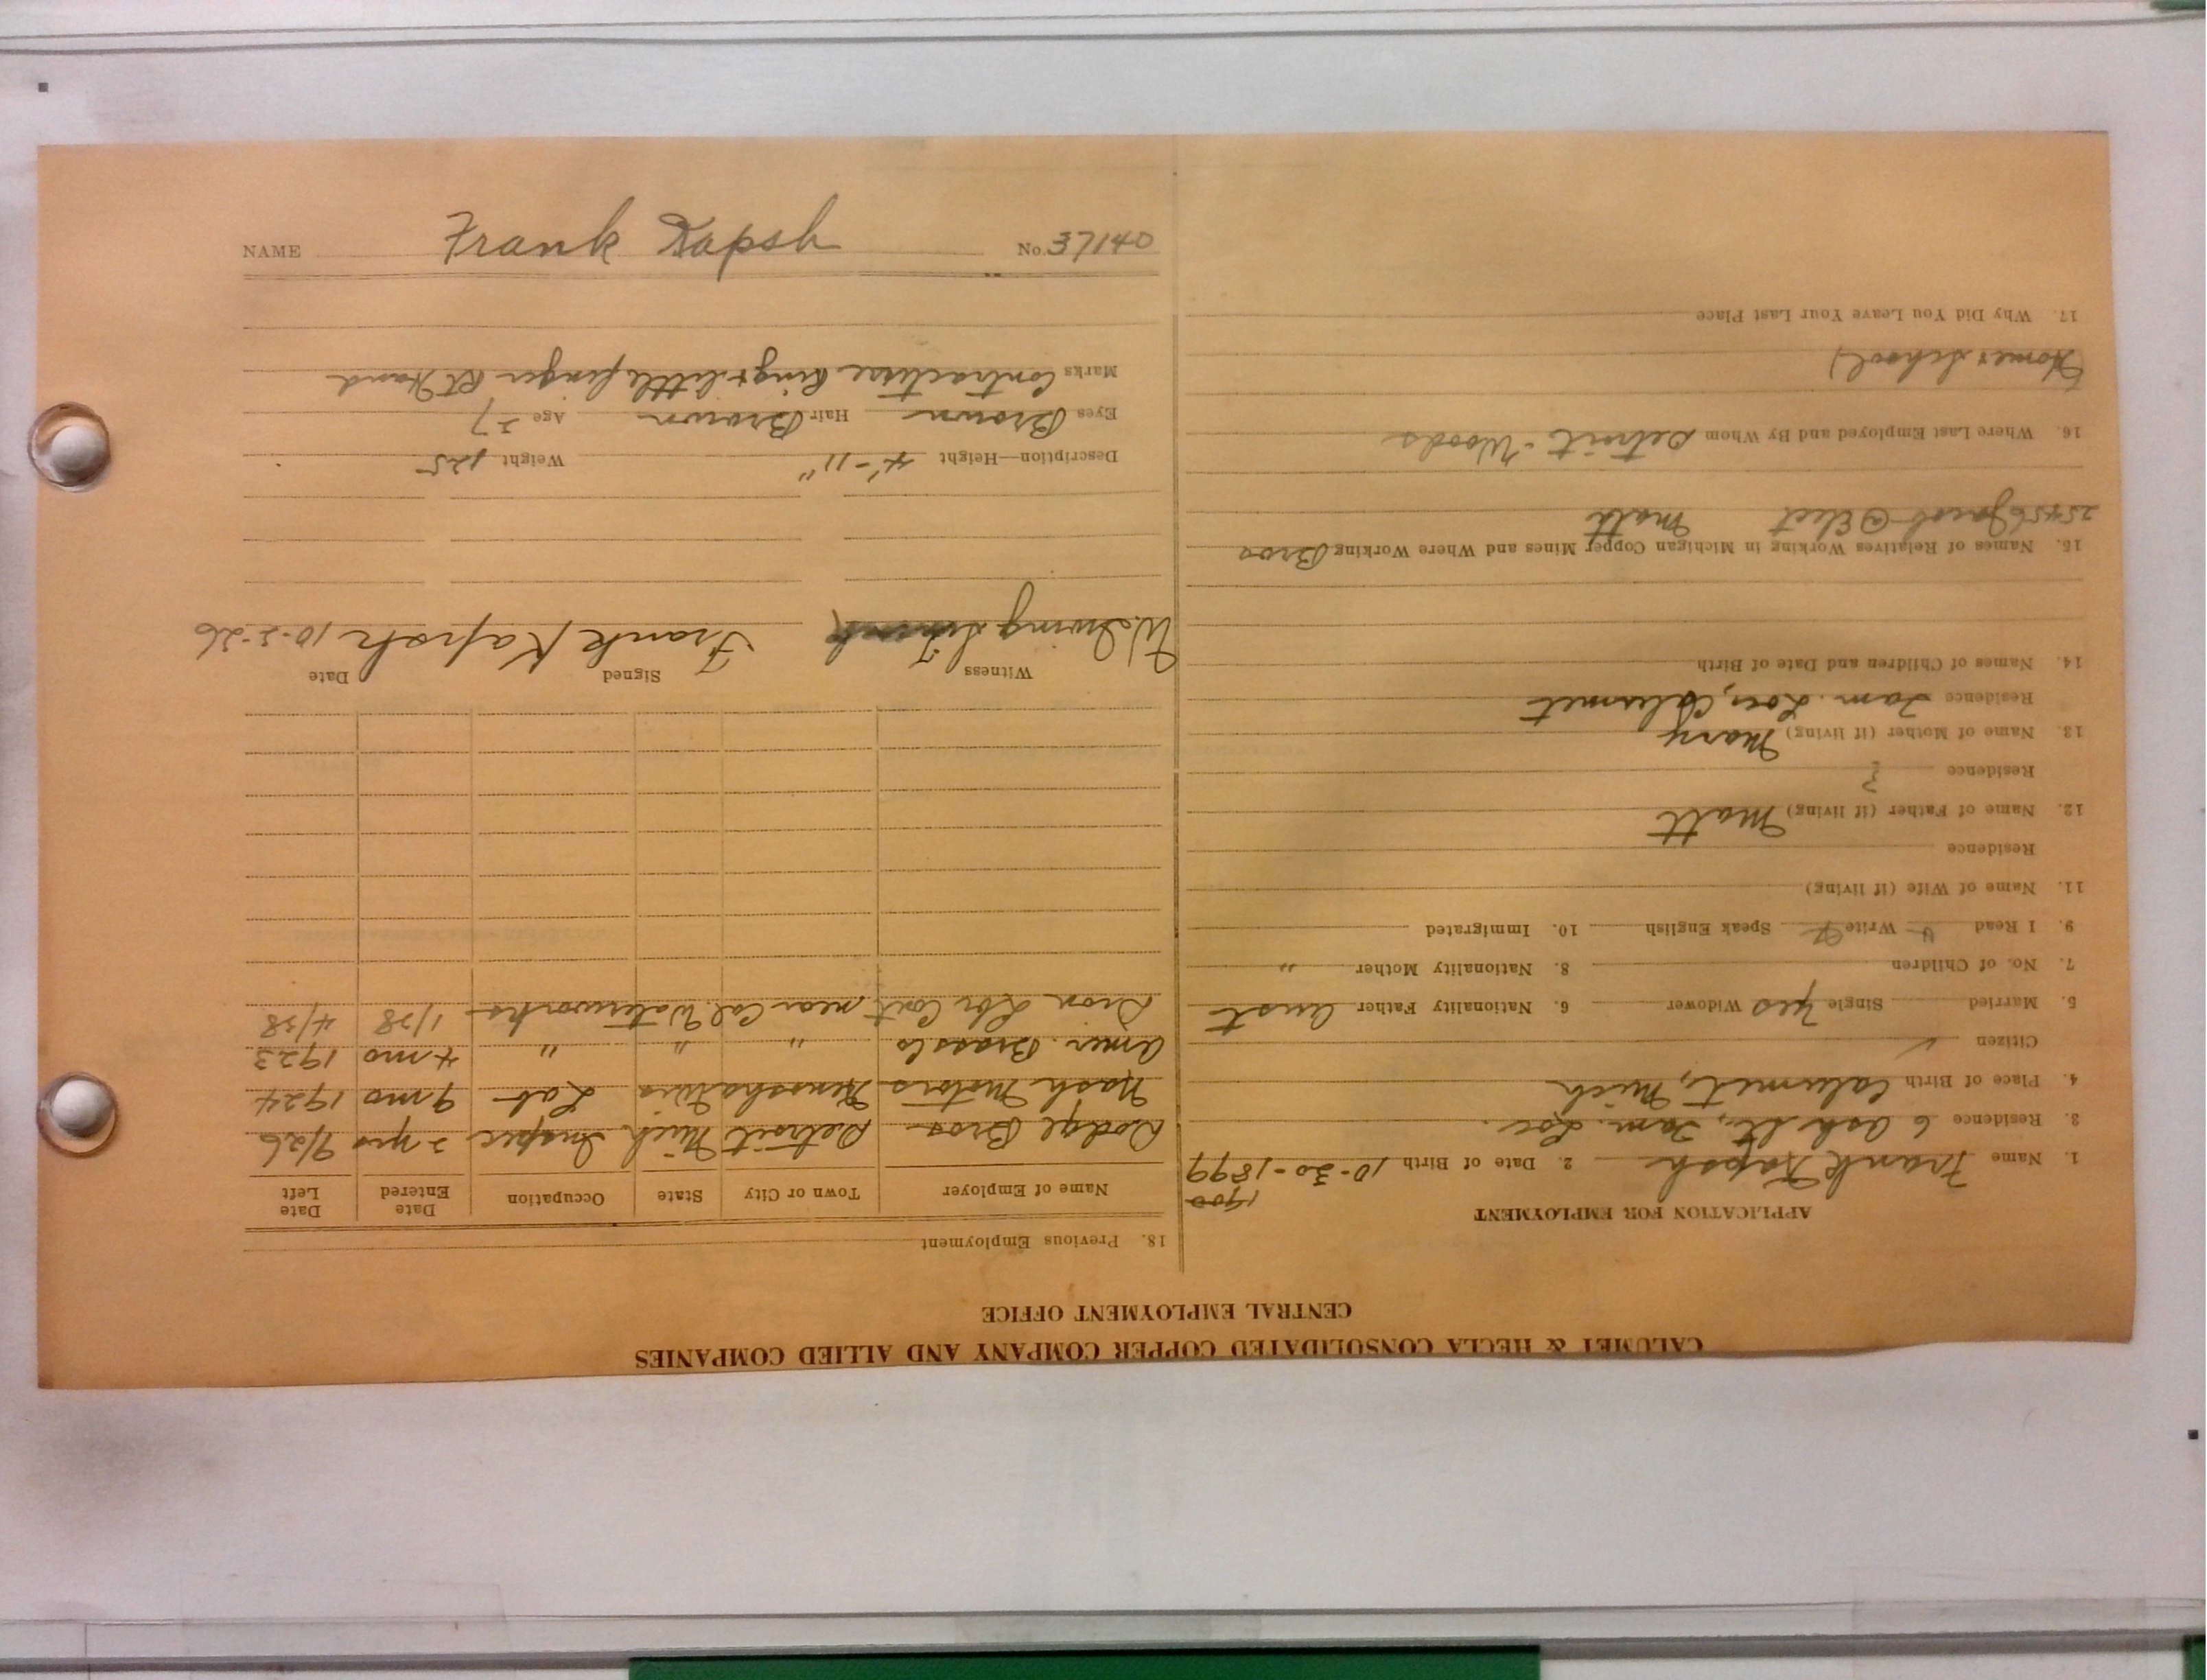 CALUMET & HECLA CONSOLIDATED COPPER COMPANY AND ALLIED COMPANIES
CENTRAL EMPLOYMENT OFFICE
APPLICATION FOR EMPLOYMENT
1900
1. Name Frank Kapsh 2. Date of Birth 10-30-1899
3. Residence 6 Ash St., Tam. Loc.
4. Place of Birth Calumet, Mich
Citizen ✓
5. Married Single Yes Widower 6. Nationality Father Aust
7. No. of Children 8. Nationality Mother "
9. I Read Write Speak English 10. Immigrated
11. Name of Wife (if living)
Residence
12. Name of Father (if living) Matt
Residence ?
13. Name of Mother (if living) Mary
Residence Tam. Loc, Calumet
14. Names of Children and Date of Birth
15. Names of Relatives Working in Michigan Copper Mines and Where Working Bros
25456 Jacob @ Elect Math
16. Where Last Employed and By Whom Detroit - Woods
(Home & School)
17. Why Did You Leave Your Last Place
18. Previous Employment
Name of Employer Town or City State Occupation Date Entered Date Left
Dodge Bros Detroit Mich Inspec 2 yrs 9/26
Nash Motors Kenosha Wis Lab 9 mo 1924
Amer. Brass Co " " " 4 mo 1923
Dion Lbr Cont near Cal. Waterworks 1/28 4/28
Witness Signed Date
W. Ewing Frank Kapsh 10-2-26
Description—Height 4'-11" Weight 125
Eyes Brown Hair Brown Age 27
Marks Contracture Ring & little finger Rt Hand
NAME Frank Kapsh No. 37140